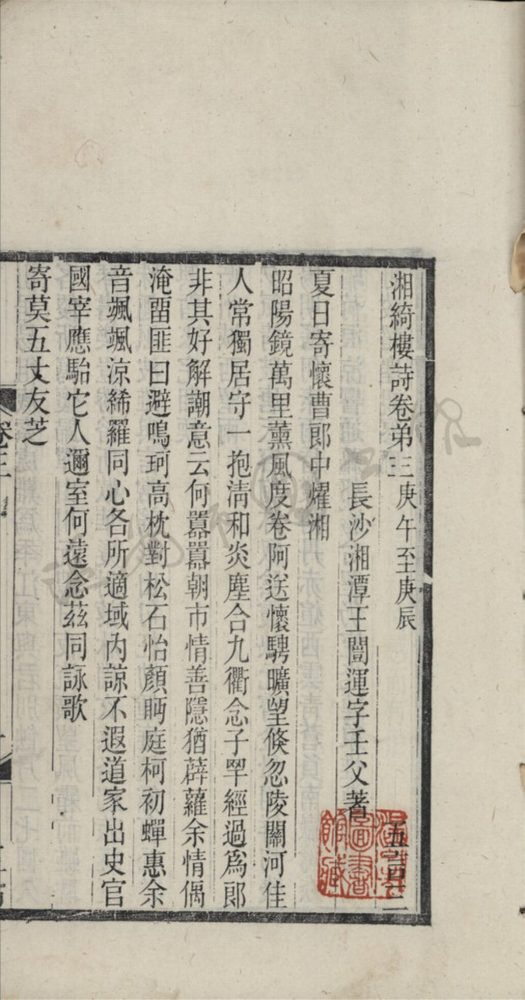 湘綺樓詩卷弟三 庚午至庚辰
長沙湘潭王闓運字壬父著
五言三
夏日寄懷曹郎中燿湘
昭陽鏡萬里薰風度卷阿送懷騁曠望倏忽陵關河佳
人常獨居守一抱淸和炎塵合九衢念子罕經過爲郎
非其好解謿意云何囂囂朝市情善隱猶薜蘿余情偶
淹畱匪曰避鳴珂高枕對松石怡顏眄庭柯初蟬惠余
音颯颯涼絺羅同心各所適域內諒不遐道家出史官
國宰應駘它人邇室何遠念茲同詠歌
寄莫五丈友芝
卷三